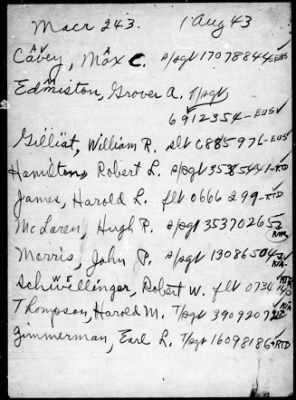 Macr 243. 1 Aug 43
Cavey, Max C. s/sgt 17078844-EUS✓
Edmiston, Grover A. T/sgt
6912354-EUS✓
Gilliat, William R. slt 0885976-EUS✓
Hamilton, Robert L. s/sgt 35385441-RTD
James, Harold L. flt 0666299-RTD
McLaren, Hugh R. s/sgt 35370265
Morris, John P. s/sgt 13086504
Schwellinger, Robert W. flt 0734
Thompson, Harold M. T/sgt 3909207
Zimmerman, Earl L. T/sgt 16098186-RTD